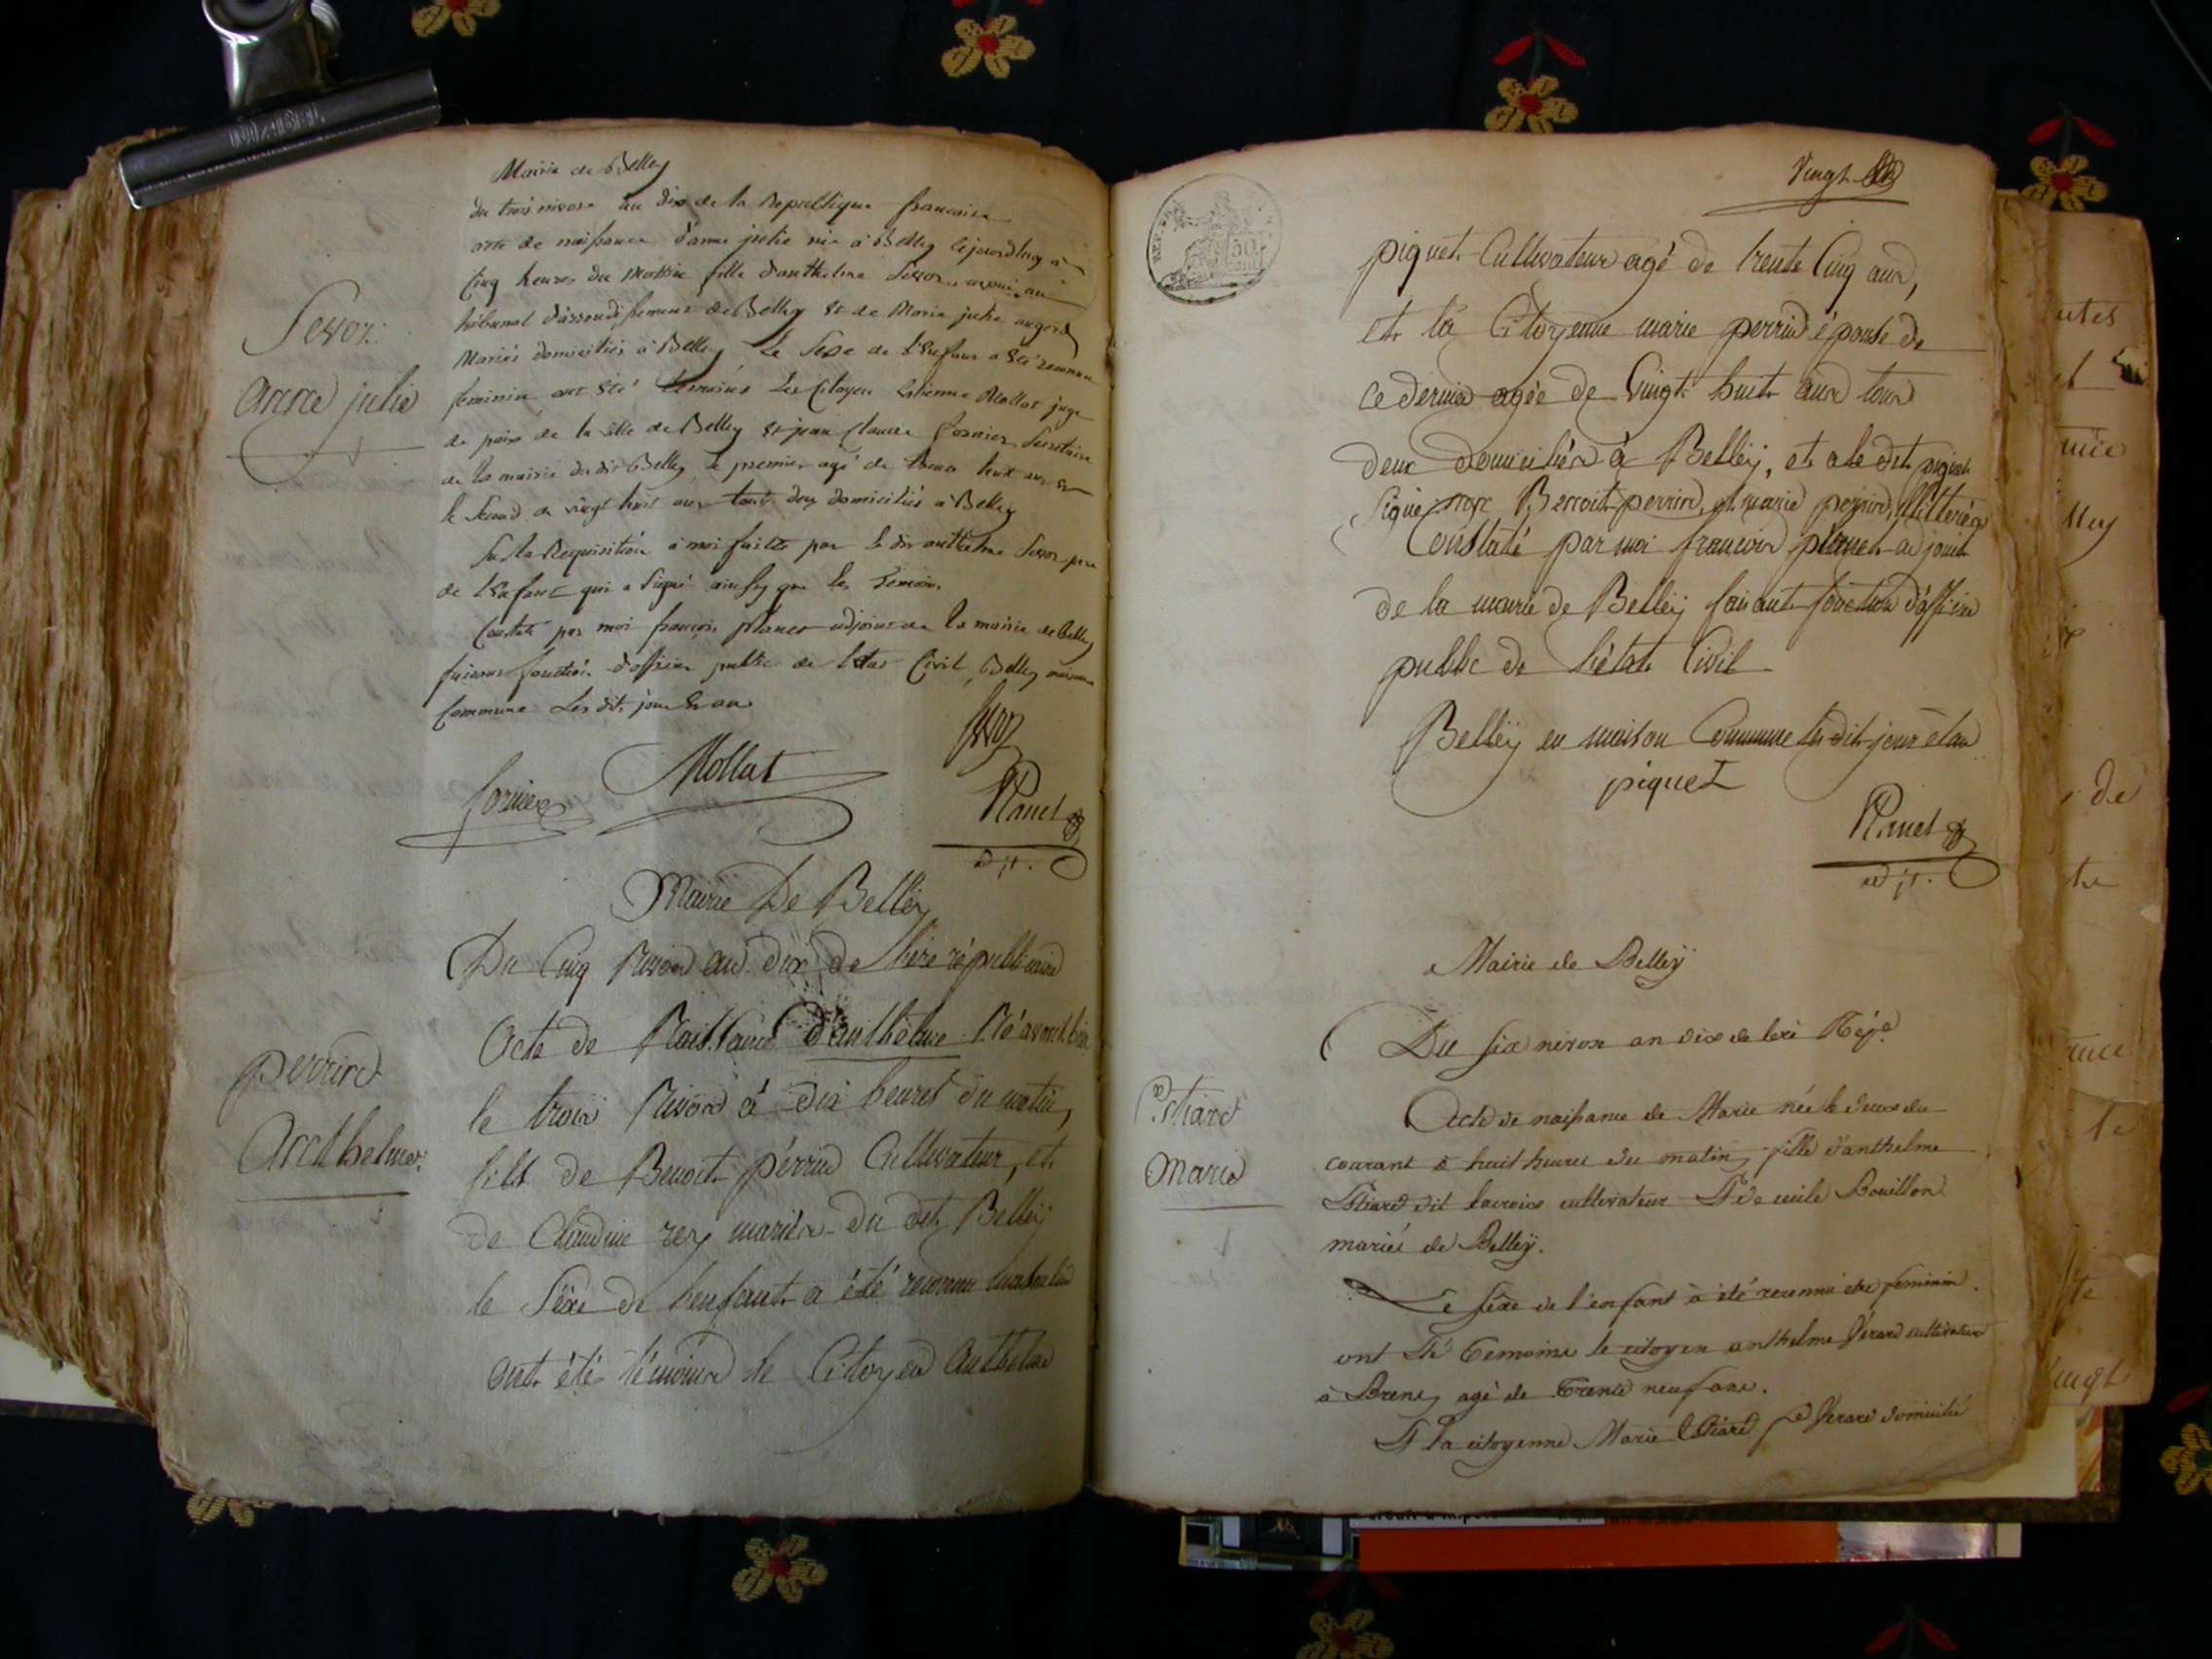 Mairie de Belley
du trois nivose an dix de la Republique francaise
acte de naissance d'anne julie née à Belley cejourdhuy à
Cinq heures du Mattin fille d'anthelme Sevoz avoué au
tribunal d'arrondissement de Belley et de Marie julie
Mariés domiciliés à Belley Le Sexe de l'Enfant a été reconnu
feminin ont été temoins Les Citoyen Etienne Mollat juge
de paix de la ville de Belley et jean Claude fornier Secretaire
de la mairie du dit Belley, le premier agé de ans et
le Second de vingt huit ans tous deux domiciliés à Belley
Sur la Requisition à moi faitte par le dit anthelme Sevoz pere
de l'Enfant qui a Signé ainsy que les temoins
Constaté par moi françois planet adjoint de la mairie de Belley
faisant fonction d'officier public de l'état Civil, Belley maison
Commune Les dits jour et an
Sevoz
Mollat
fornier
Planet
adjt.
Sevoz
anne julie
Mairie De Belleÿ
Du Cinq Nivose an dix de l'hère républicaine
Acte de Naissance d'anthelme Né avant hier
le trois Nivose à dix heures du matin,
fils de Benoit perrin Cultivateur, et
de Claudine rey mariés du dit Belleÿ
le Sèxe de l'enfant a été reconnu masculin
ont été témoins le Citoyen Anthelme
perrin
Anthelme
Vingt
piquet Cultivateur agé de trente Cinq ans,
et la Citoyenne marie perrin épouse de
ce dernier agée de Vingt huit ans tous
deux domiciliés à Belleÿ, et a le dit piquet
Signé non Benoit perrin, et marie perrin, illitterés
Constaté par moi françois planet adjoint
de la mairie de Belleÿ faisant fonction d'officier
public de l'état Civil
Belleÿ en maison Commune les dit jour et an
piquet
Planet
adjt.
Mairie de Belleÿ
Du six nivose an dix de l'erè Rép.e
Acte de naissance de Marie née le deux du
courant à huit heures du matin, fille d'anthelme
Etiard dit lacroix cultivateur Et de cecile Bouillon
mariés de Belleÿ.
Le sèxe de l'enfant à été reconnu etre feminin.
ont Eté Temoins le citoyen anthelme Gérard cultivateur
à Brens agé de Trente neuf ans.
Et la citoyenne Marie Etiard fe Gerard domicilié
Etiard
Marie